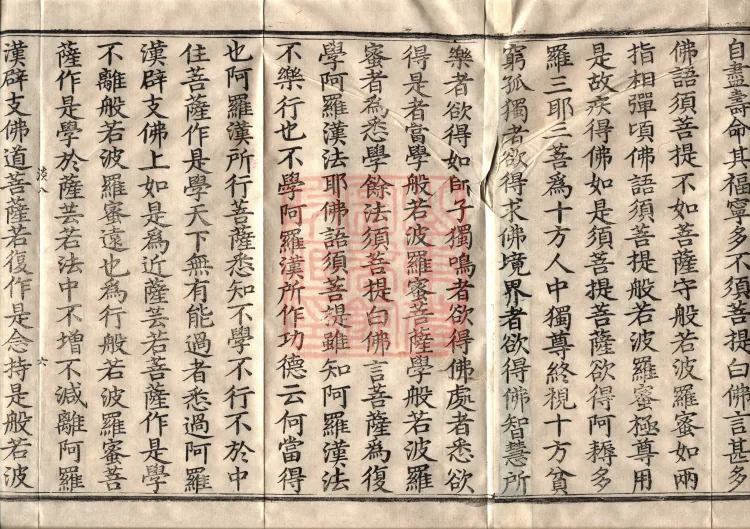 自盡壽命其福寧多不須菩提白佛言甚多
佛語須菩提不如菩薩守般若波羅蜜如兩
指相彈頃佛語須菩提般若波羅蜜極尊用
是故疾得佛如是須菩提菩薩欲得阿耨多
羅三耶三菩為十方人中獨尊終視十方貧
窮孤獨者欲得求佛境界者欲得佛智慧所
樂者欲得如師子獨鳴者欲得佛處者悉欲
得是者當學般若波羅蜜菩薩學般若波羅
蜜者為悉學餘法須菩提白佛言菩薩為復
學阿羅漢法耶佛語須菩提雖知阿羅漢法
不樂行也不學阿羅漢所作功德云何當得
也阿羅漢所行菩薩悉知不學不行不於中
住菩薩作是學天下無有能過者悉過阿羅
漢辟支佛上如是為近薩芸若菩薩作是學
不離般若波羅蜜遠也為行般若波羅蜜菩
薩作是學於薩芸若法中不增不減離阿羅
淡八 六
漢辟支佛道菩薩若復作是念持是般若波